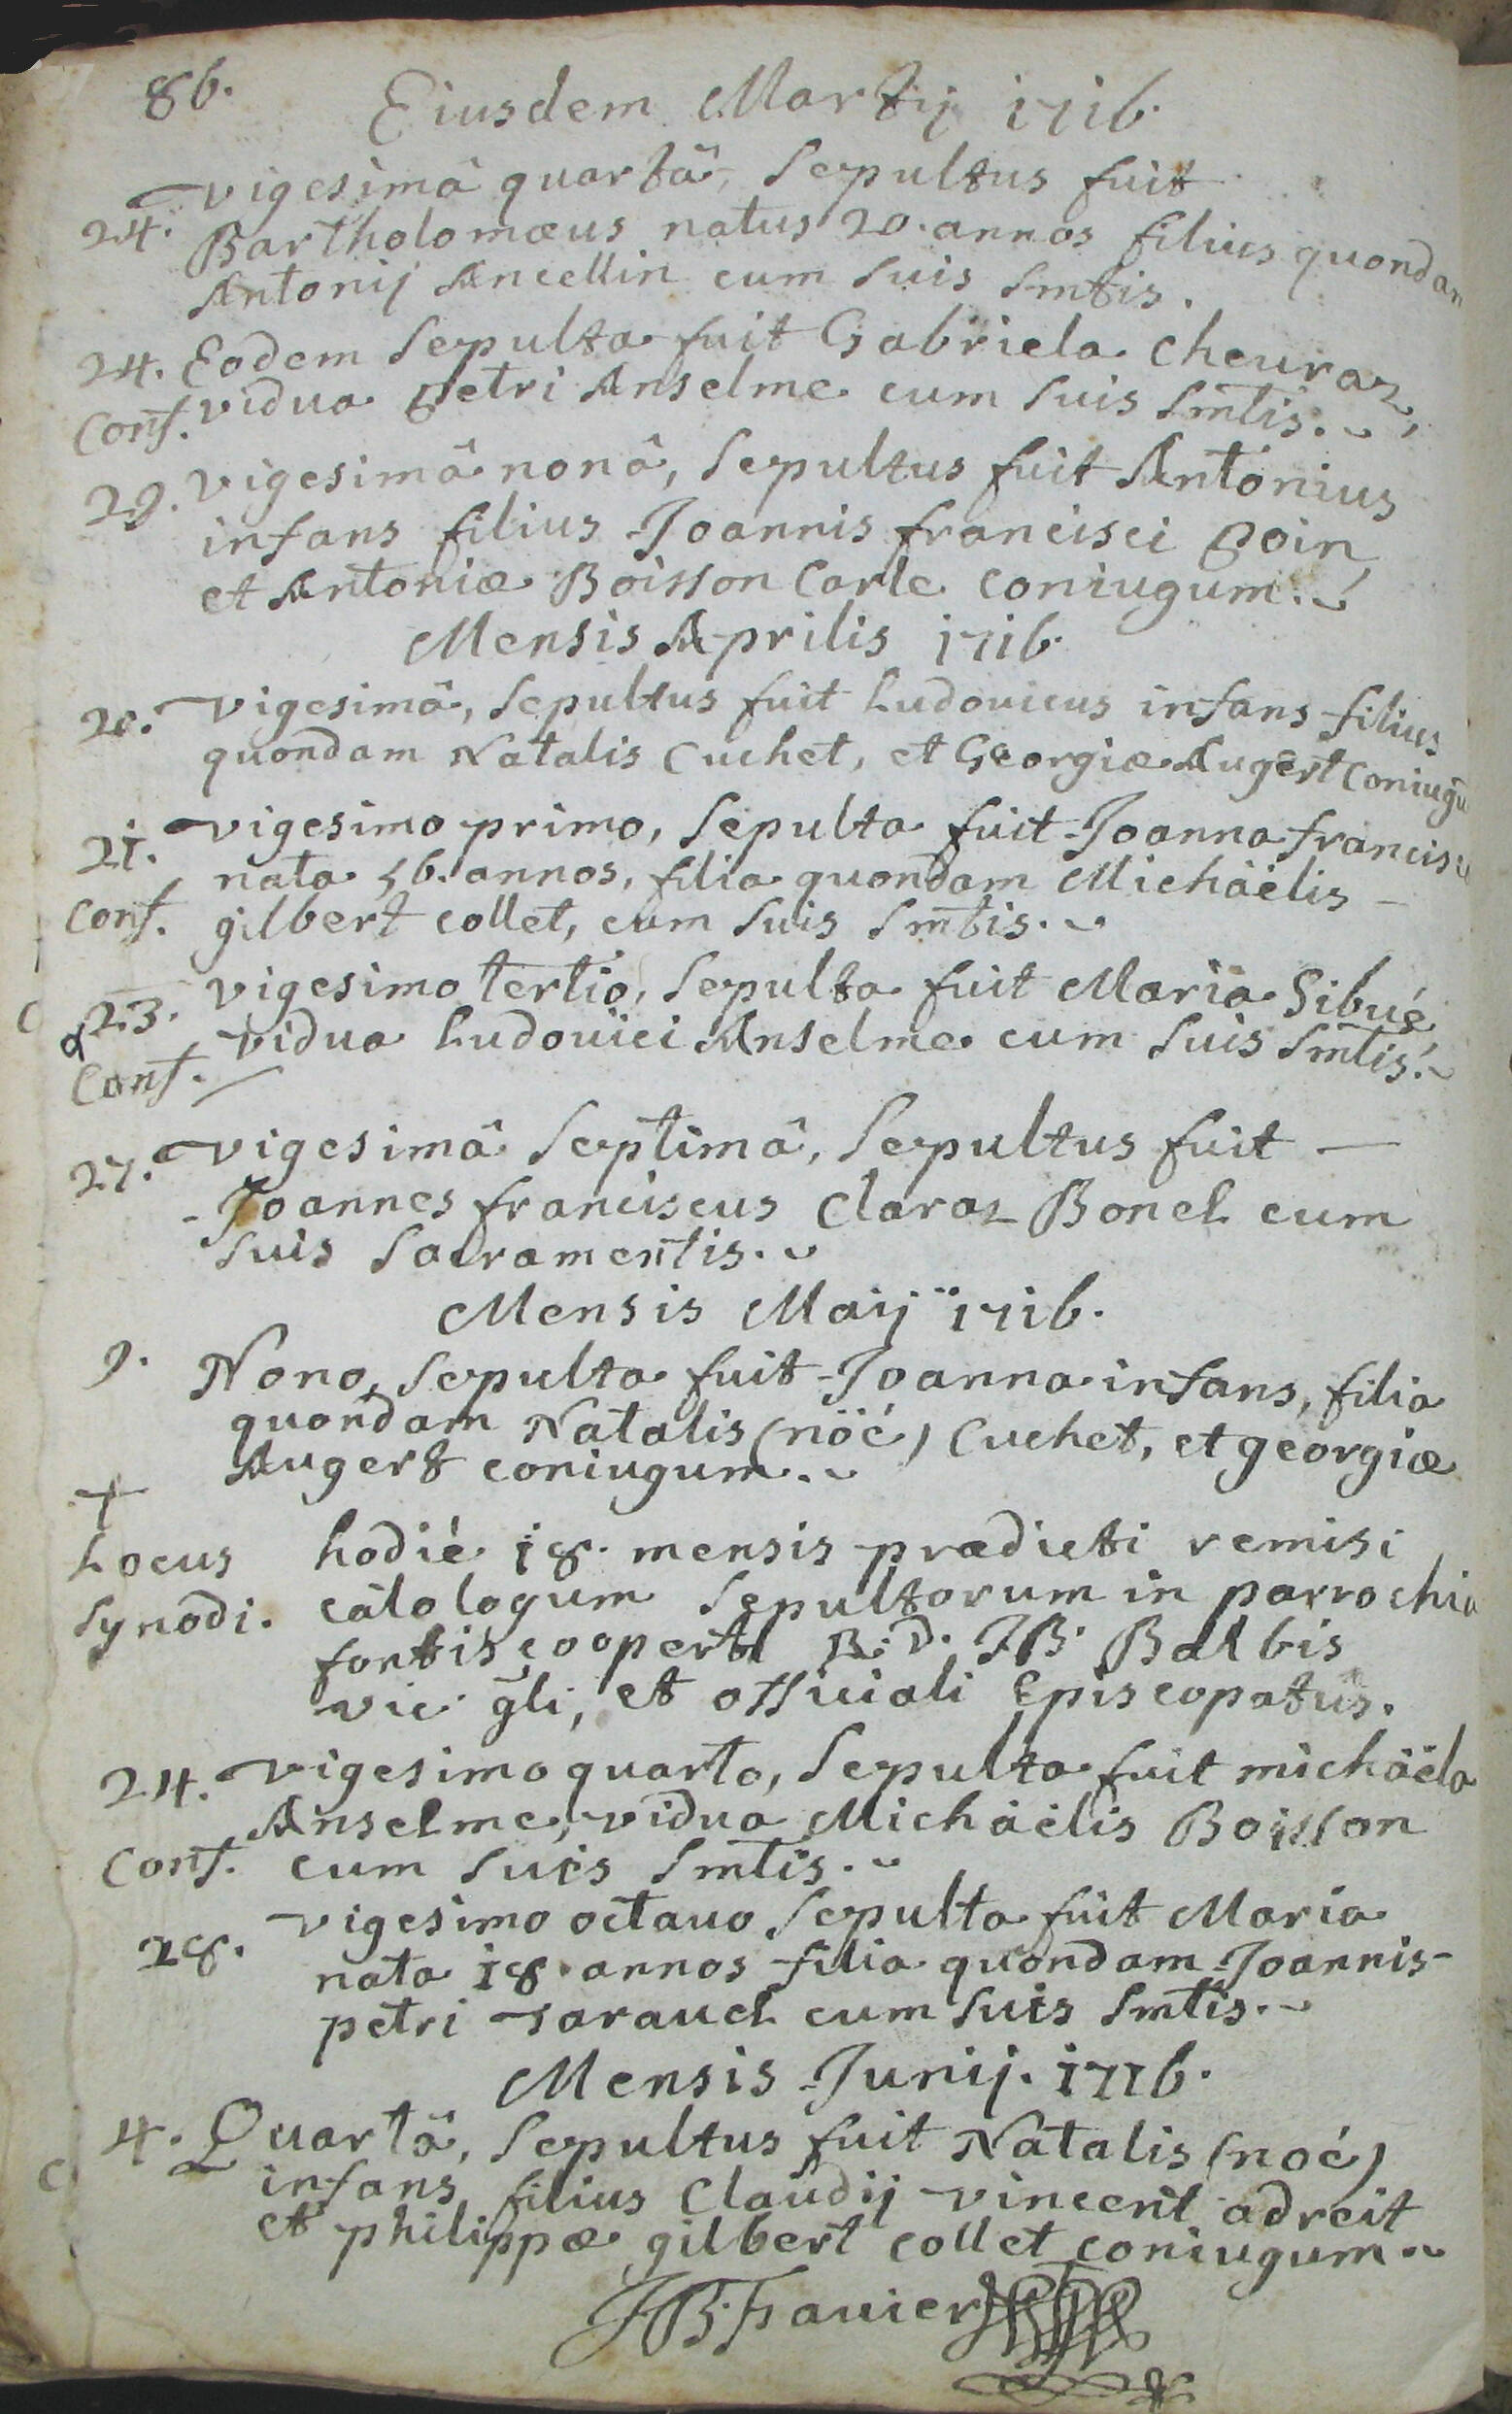 86.
Eiusdem Martij 1716.
24. vigesimâ quartâ, sepultus fuit
Bartholomæus natus 20. annos filius quondam
Antonij Ancellin cum suis smtis.
24. Eodem sepulta fuit Gabriela cheuraz,
Conf. vidua petri Anselme cum suis smtis.
29. vigesimâ nonâ, sepultus fuit Antonius
infans filius Joannis francisci Goin
et Antoniæ Boisson Carle coniugum.
Mensis Aprilis 1716.
20. vigesimâ, sepultus fuit Ludouicus infans filius
quondam Natalis Cuchet, et Georgiæ Augert Coniugu
21. vigesimo primo, sepulta fuit Joanna francisca
nata 56. annos, filia quondam Michäelis
Conf. gilbert collet, cum suis smtis.
23. vigesimo tertio, sepulta fuit Maria Sibué
Conf. vidua Ludouici Anselme cum suis smtis.
27. vigesimâ septimâ, sepultus fuit
Joannes franciscus Claraz Bonel cum
suis sacramentis.
Mensis Maij 1716.
9. Nono, sepulta fuit Joanna infans, filia
quondam Natalis (nöé) Cuchet, et georgiæ
Augert coniugum.
+
Locus hodié 18. mensis prædicti remisi
synodi. catologum sepultorum in parrochia
fontis cooperti R. D. JB. Balbis
vic. gli, et officiali Episcopatus.
24. vigesimo quarto, sepulta fuit michäela
Anselme, vidua Michäelis Boisson
Conf. cum suis smtis.
28. vigesimo octauo sepulta fuit Maria
nata 18 annos filia quondam Joannis
petri tarauel cum suis smtis.
Mensis Junij. 1716.
4. Quartâ, sepultus fuit Natalis (noé)
infans filius Claudij vincent adreit
et philippæ gilbert collet coniugum
JB. Frauier